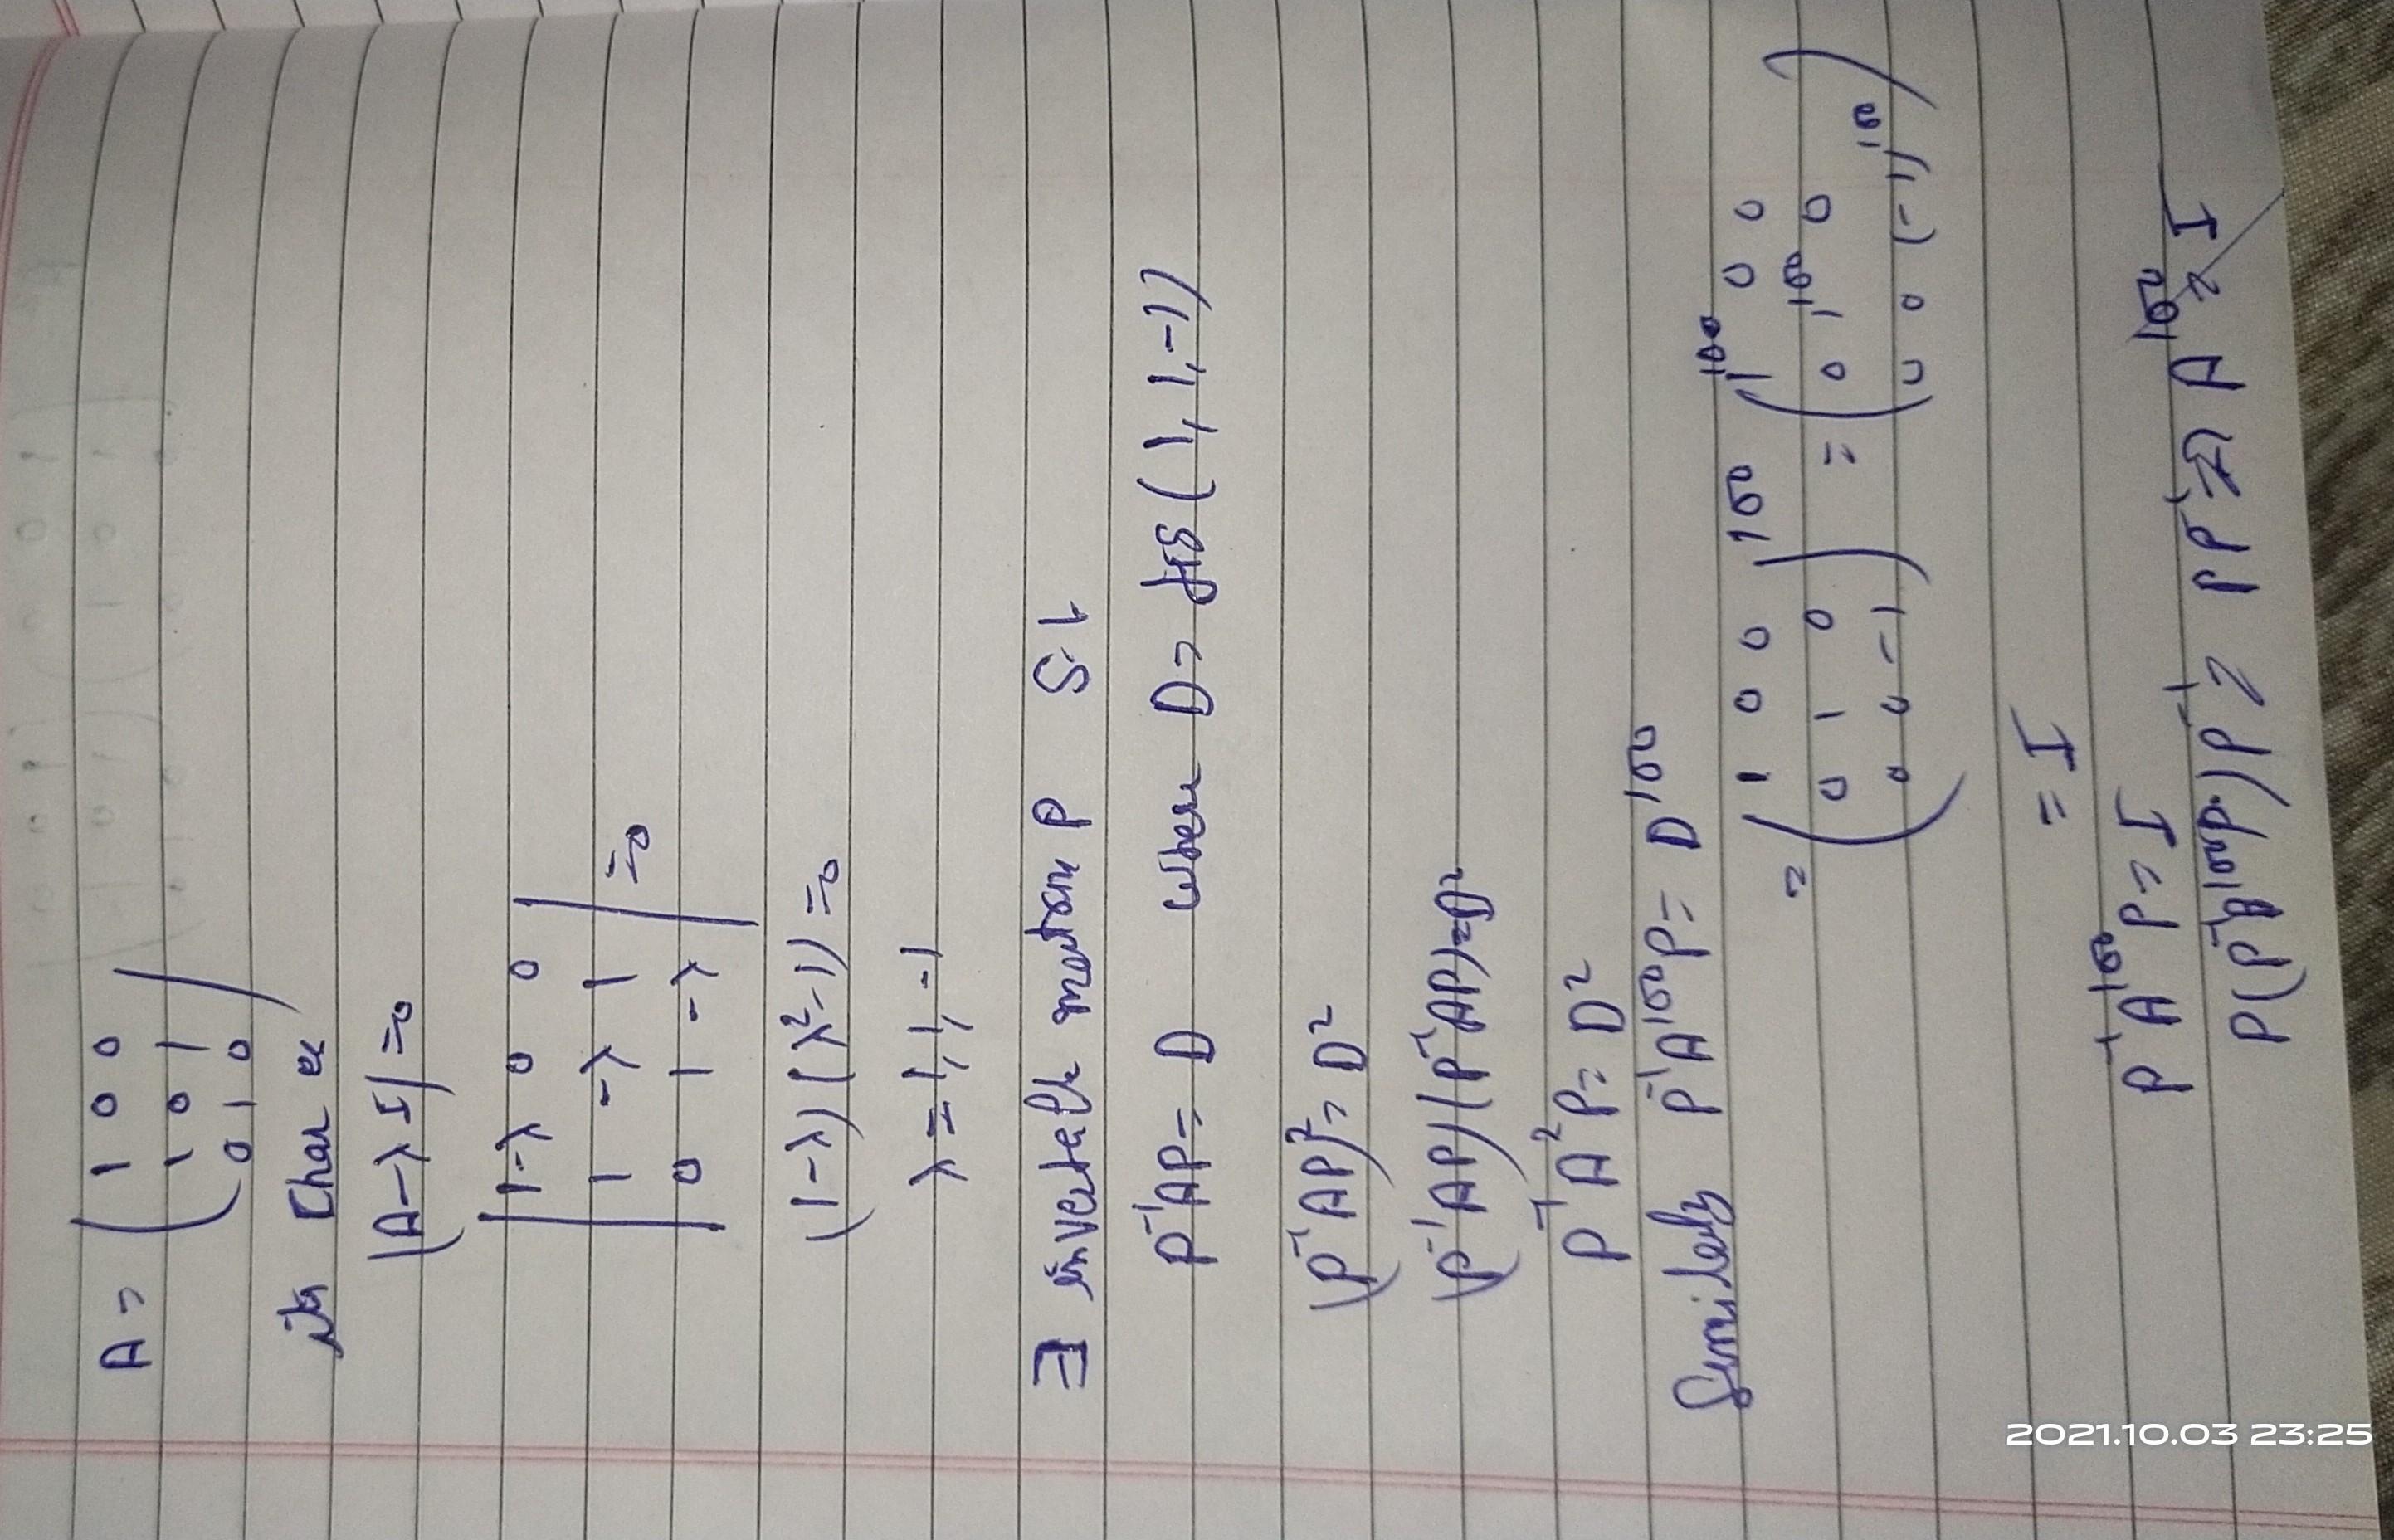 A = ( 1 0 0
1 0 1
0 1 0 )
its Char eq
|A-λI|=0
| 1-λ 0 0
1 -λ 1
0 1 -λ | =0
(1-λ)(λ²-1)=0
λ=1,1,-1
∃ invertible matrix P S.t
P⁻¹AP= D where D= dig(1,1,-1)
(P⁻¹AP)²= D²
(P⁻¹AP)(P⁻¹AP)=D²
P⁻¹A²P= D²
Similerly P⁻¹A¹⁰⁰P= D¹⁰⁰
= ( 1 0 0
0 1 0
0 0 -1 )¹⁰⁰ = ( 1¹⁰⁰ 0 0
0 1¹⁰⁰ 0
0 0 (-1)¹⁰⁰ )
= I
P⁻¹A¹⁰⁰P= I
P(P⁻¹A¹⁰⁰P)P⁻¹= PP⁻¹ ⇒ A¹⁰⁰= I
2021.10.03 23:25